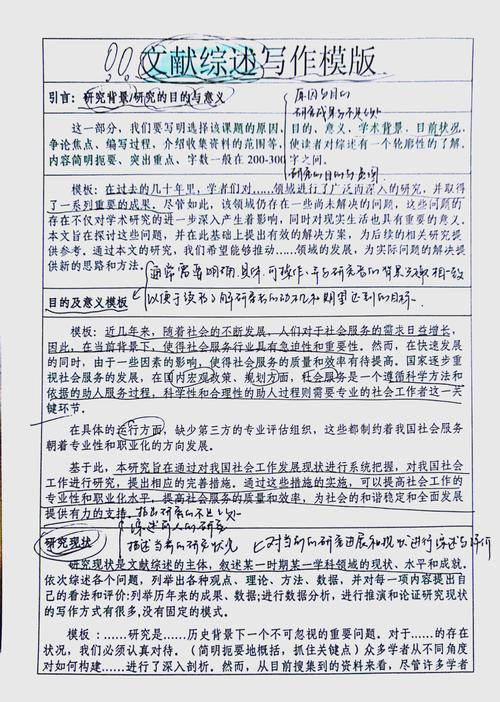 文献综述写作模版
引言:研究背景/研究的目的与意义
原因与目的
这一部分,我们要写明选择该课题的原因、目的、意义、学术背景、目前状况、
争论焦点、编写过程,介绍收资料的范围等,使读者对综述有一个轮廓性的了解。
内容简明扼要、突出重点、字数一般在200-300字之间。
模板:在过去的几十年里,学者们对......领域进行了广泛而深入的研究,并取得
了一系列重要的成果。尽管如此,该领域仍存在一些尚未解决的问题,这些问题的
存在不仅对学术研究的进一步深入产生着影响,同时对现实生活也具有重要的意义。
本文旨在探讨这些问题,并在此基础上提出有效的解决方案,为后续的相关研究提
供参考。通过本文的研究,我们希望能够推动......领域的发展,为实际问题的解决提
供新的思路和方法。
通常需要明确,具体,可操作,与研究者的背景
目的及意义模板
以便于读者了解研究者的动机和期望达到的目标.
模板:近几年来,随着社会的不断发展,人们对于社会服务的需求日益增长,
因此,在当前背景下,使得社会服务行业具有急迫性和重要性。然而,在快速发展
的同时,由于一些因素的影响,使得社会服务的质量和效率有待提高。国家逐步重
视社会服务的发展,在国内宏观政策、规划方面,社会服务是一个遵循科学方法和
依据的助人服务过程,科学性和合理性的助人过程则需要专业的社会工作者这一关
键环节。
在具体的运行方面,缺少第三方的专业评估组织,这些都制约着我国社会服务
朝着专业性和职业化的方向发展。
基于此,本研究旨在通过对我国社会工作发展现状进行系统把握,对我国社会
工作进行研究,提出相应的完善措施。通过这些措施的实施,可以提高社会工作的
专业性和职业化水平,提高社会服务的质量和效率,为社会的和谐稳定和全面发展
提供有力的支持。
综述前人的研究
研究现状
描述当前的研究状况
对当前的研究进展和现状进行综述与评价
研究现状是文献综述的主体,叙述某一时期某一学科领域的现状、水平和成就。
依次综述各个问题,列举出各种观点、理论、方法、数据,并对每一项内容提出自
己的看法和评价;列举历年来的成果、数据;进行数据分析,进行推演和论证研究现状
的写作方式有很多,没有固定的模式。
模板:......研究是......历史背景下一个不可忽视的重要问题。对于......的存在
状况,我们必须认真对待。(简明扼要地概括,抓住关键点)众多学者从不同角度
对如何构建......进行了深入剖析。然而,从目前搜集到的资料来看,尽管许多学者